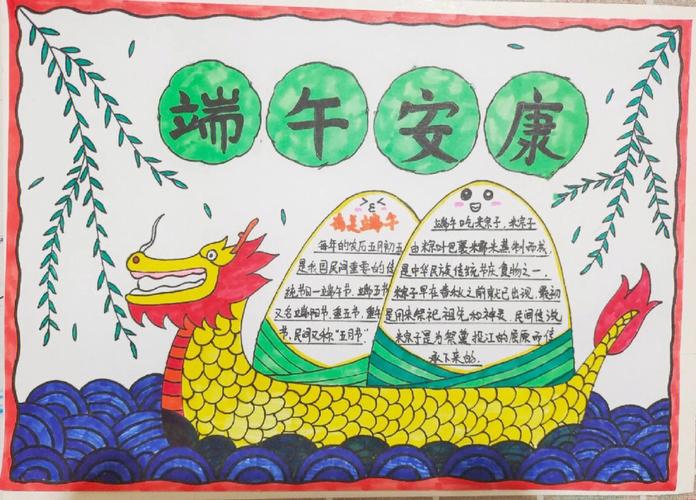 端午安康
是端午
每年的农历五月初五
是我国民间重要的传
统节日一端午节,端五节
又名端阳节,重五节,重午
节,民间又称"五月节"
端午吃粽子,粽子
由粽叶包裹糯米蒸制而成,
是中华民族传统节庆食物之一.
粽子早在春秋之前就已出现,最初
是用来祭祀祖先和神灵,民间传说
粽子是为祭奠投江的屈原而传
承下来的.